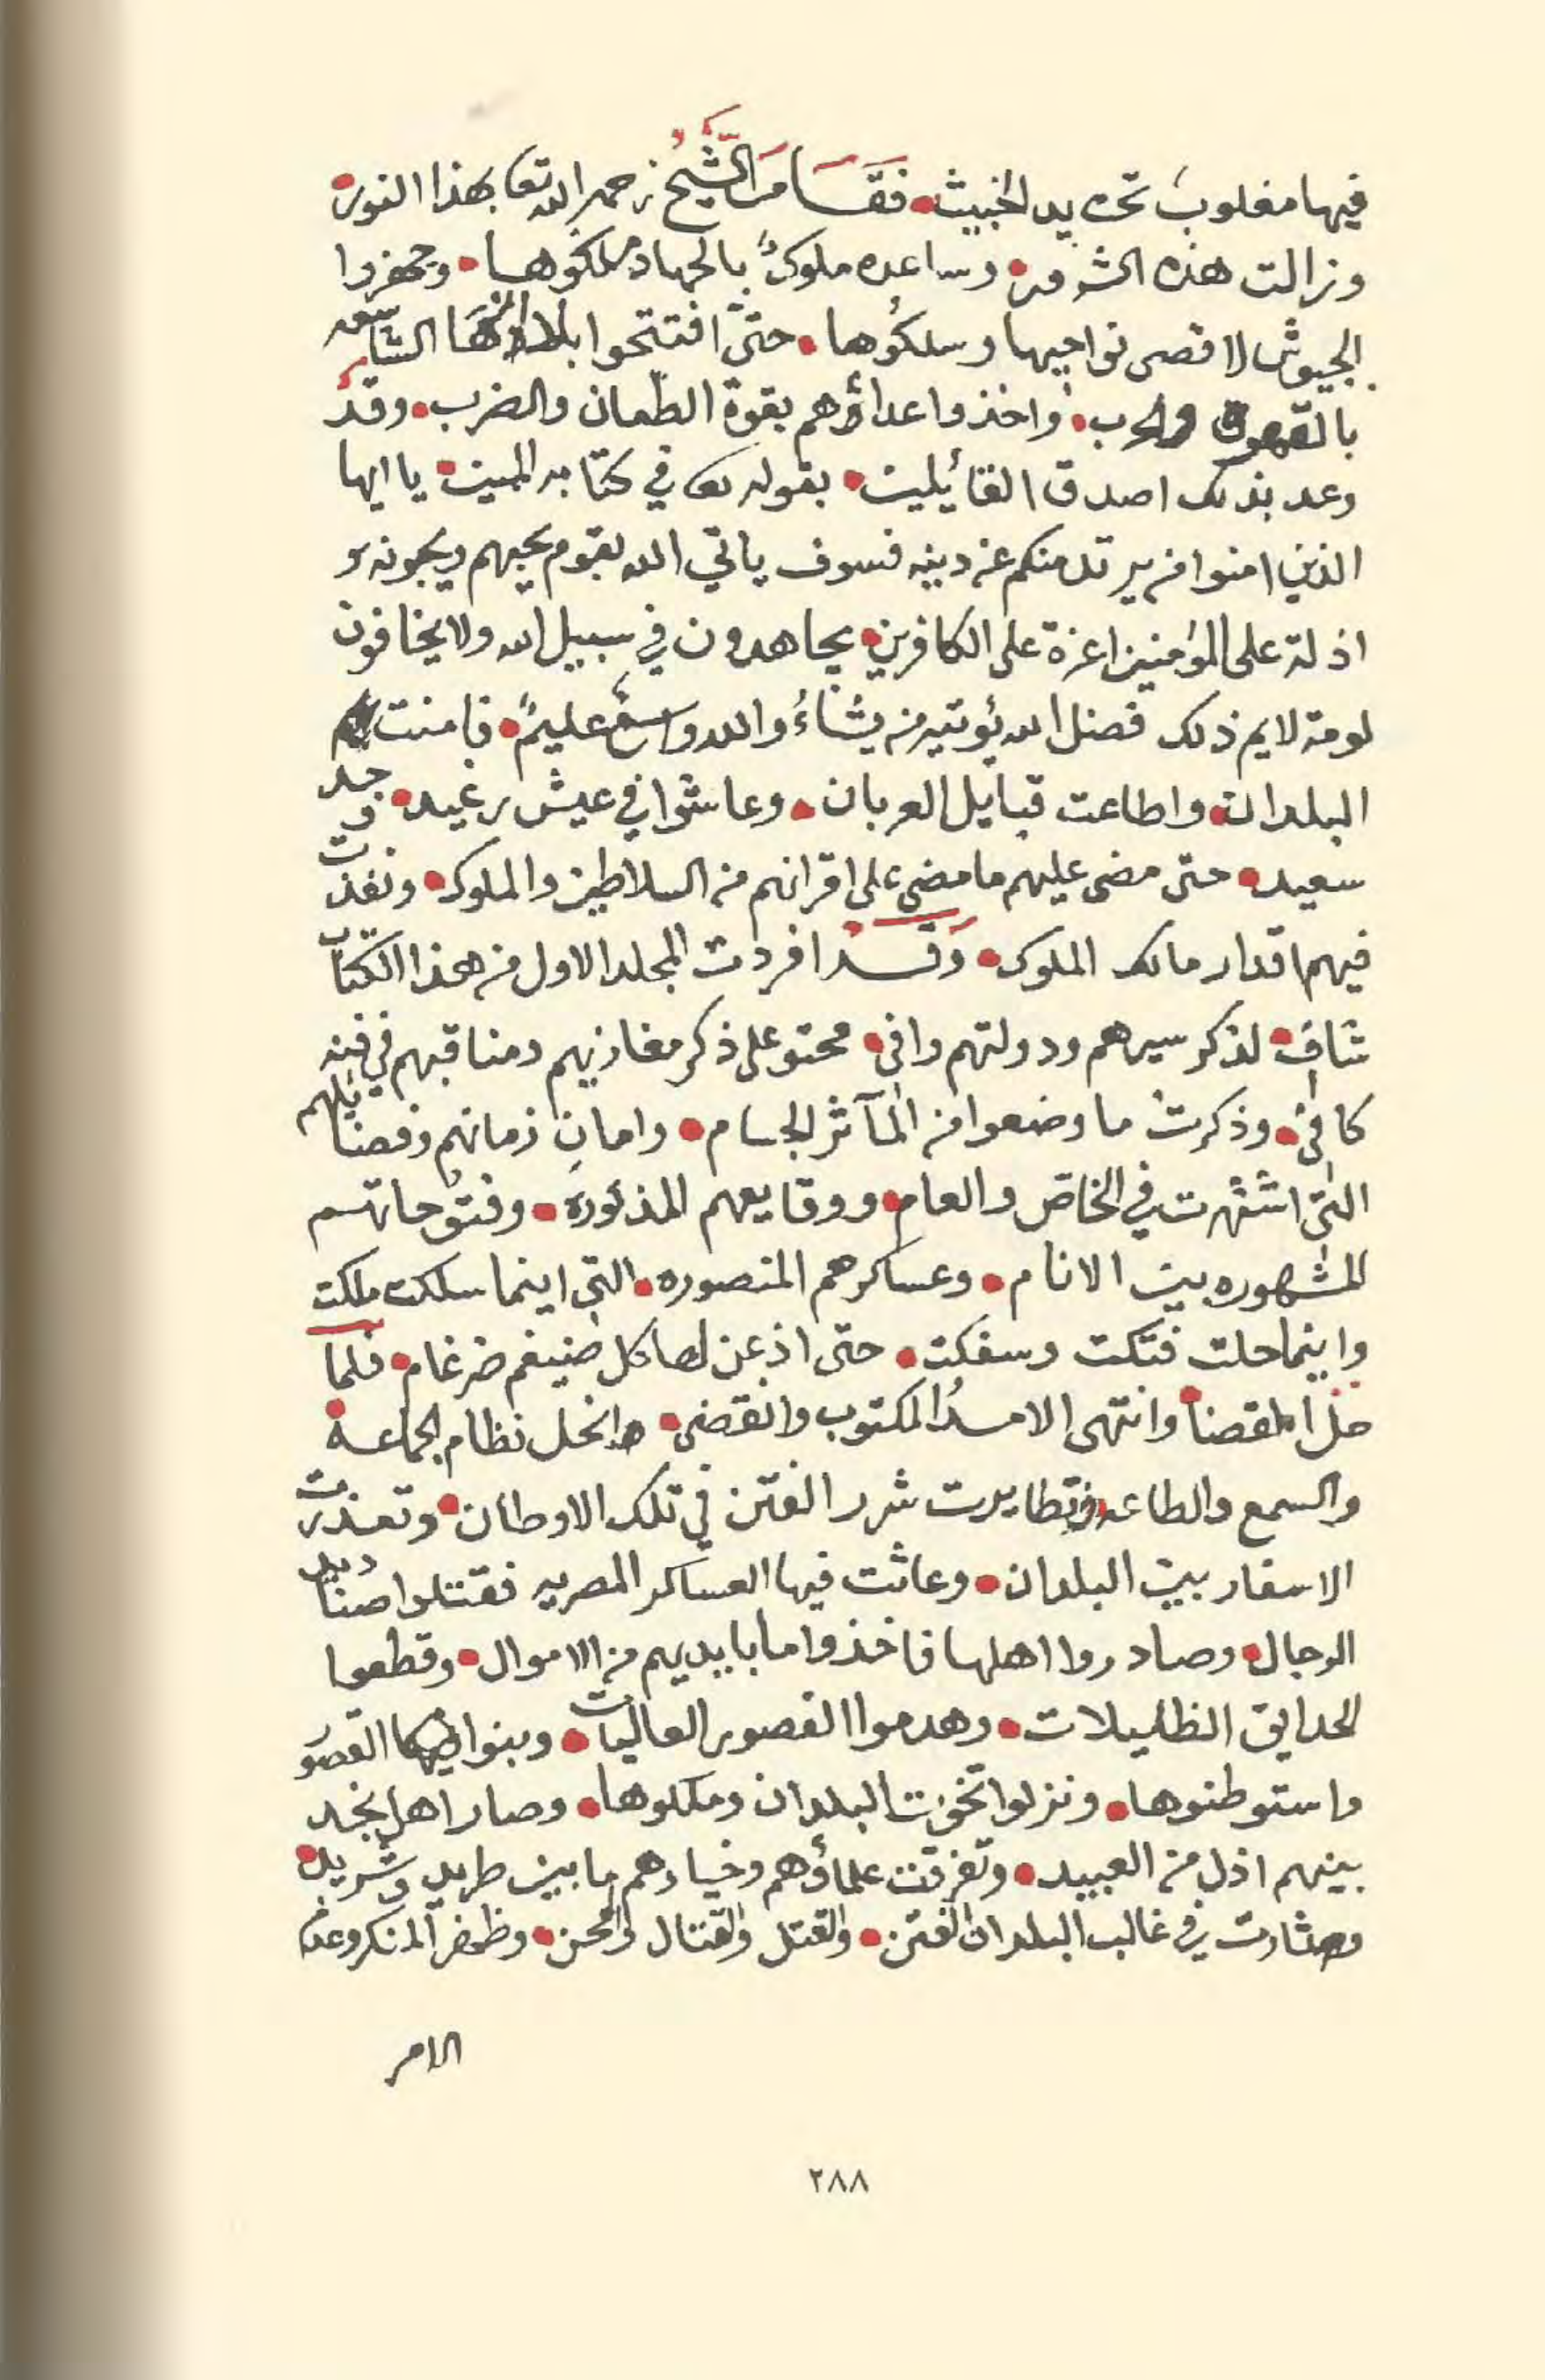 فيها مغلوب تحت يد الخبيث • فقام الشيخ رحمه الله تعا بهذا النور •
وزالت هذه الشرور • وساعده ملوك بالجهاد ملكوها • وجهزوا
الجيوش لاقصى نواحيها وسلكوها • حتى افتتحوا الشاسعه
بالقهر والحرب • واخذوا اعداؤهم بقوة الطعان والضرب • وقد
وعد بذلك اصدق القائيلين • بقوله تعا في كتابه المبين • يا ايها
الذين امنوا من يرتد منكم عن دينه فسوف ياتي الله بقوم يحبهم ويحبونه
اذلة على المؤمنين اعزة على الكافرين • يجاهدون في سبيل الله ولا يخافون
لومة لايم ذلك فضل الله يؤتيه من يشاءُ والله واسعٌ عليمٌ • فامنت بهم
البلدان • واطاعت قبايل العربان • وعاشوا في عيش رغيد • وجد
سعيد • حتى مضى عليهم ما مضى على اقرانهم من السلاطين والملوك • ونفذت
فيهم اقدار مالك الملوك • وَقَدْ افردت المجلد الاول من هذا الكتاب
شاف • لذكر سيرهم ودولتهم وافى • محتو على ذكر مغازيهم ومناقبهم في فنه
كافئ • وذكرت ما وضعوا من المآثر الجسام • وامان زمانهم وفضايلهم
التى اشتهرت في الخاص والعام • ووقايعهم المذكورة • وفتوحاتهم
المشهوره بين الانام • وعساكرهم المنصوره • التي اينما سلكت ملكت
واينما حلت فتكت وسفكت • حتى اذعن لها كل ضيغم ضرغام • فلما
حل القضا • وانتهى الامدُ المكتوب وانقضى • وانحل نظام الجماعة •
والسمع والطاعه • وتطايرت شرر الفتن في تلك الاوطان • وتعذرت
الاسفار بين البلدان • وعاثت فيها العساكر المصريه فقتلوا صناديد
الرجال • وصادروا اهلها فاخذوا ما بايديهم من الاموال • وقطعوا
الحدايق الظليلات • وهدموا القصور العاليات • وبنوا فيها القصور
واستوطنوها • ونزلوا تخوت البلدان وملكوها • وصار اهل نجد
بينهم اذل من العبيد • وتفرقت علماؤهم وخيارهم ما بين طريد وشريد •
وثارت في غالب البلدان الفتن • والقتل والقتال والمحن • وظهر المنكر وعدم
الامر
٢٨٨